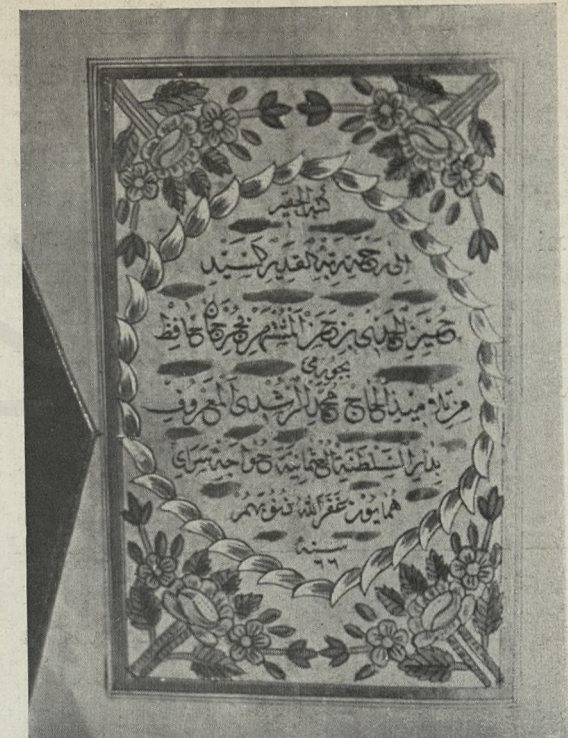 كتبه الحقير
الى رحمة ربه القدير السيد
حسين الحمدي بن حمزه المشتهر بحافظ
من تلاميذ الحاج محمد الرشدي المعروف
بدار السلطنة العثمانية خواجه سراى
همايون غفر الله ذنوبهم
سنه
٦٦